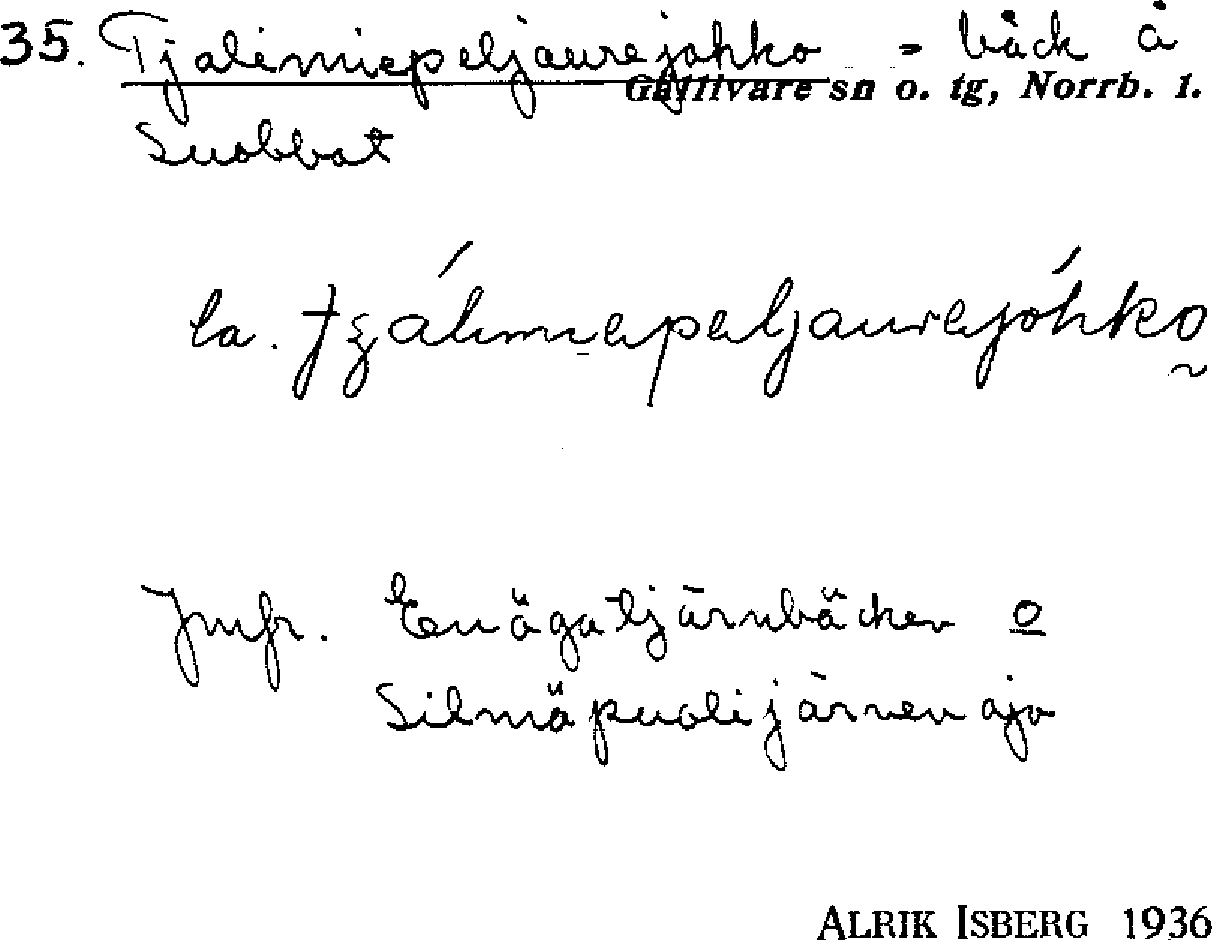 35. Tjalimiepeljaurejohko = bäck å
Gällivare sn o. tg, Norrb. l.
Suobbat
la. tʒálimiepeljaurejóhko
Jmfr. Enögatjärnbäcken o
Silmäpuolijärvenoja
ALRIK ISBERG 1936